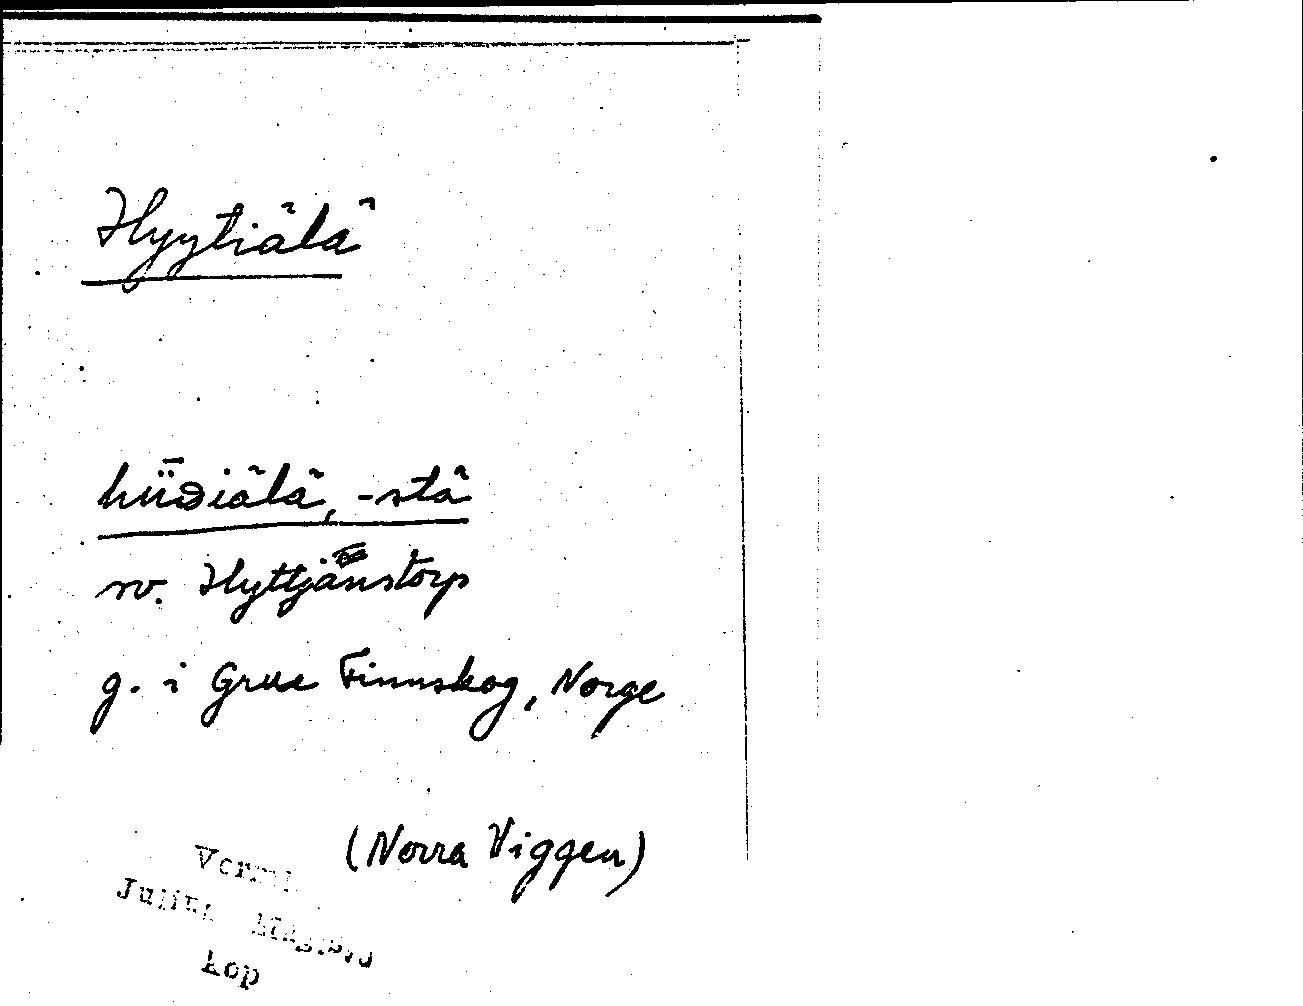 Hyytiälä
hǖᴅiälä, -stä
rv. Hyttjänstorp
g. i Grue Finnskog, Norge
(Norra Viggen)
Julius
kop